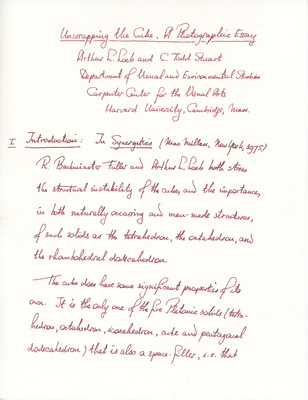 Unwrapping the Cube: A Photographic Essay
Arthur L. Loeb and C. Todd Stuart
Department of Visual and Environmental Studies
Carpenter Center for the Visual Arts
Harvard University, Cambridge, Mass.
I Introduction: In Synergetics (MacMillan, New York, 1975)
R. Buckminster Fuller and Arthur L. Loeb both stress
the structural instability of the cube, and the importance,
in both naturally occurring and man-made structures,
of such solids as the tetrahedron, the octahedron, and
the rhombohedral dodecahedron.
The cube does have some significant properties of its
own. It is the only one of the five Platonic solids (tetra-
hedron, octahedron, icosahedron, cube and pentagonal
dodecahedron) that is also a space-filler, i.e. that